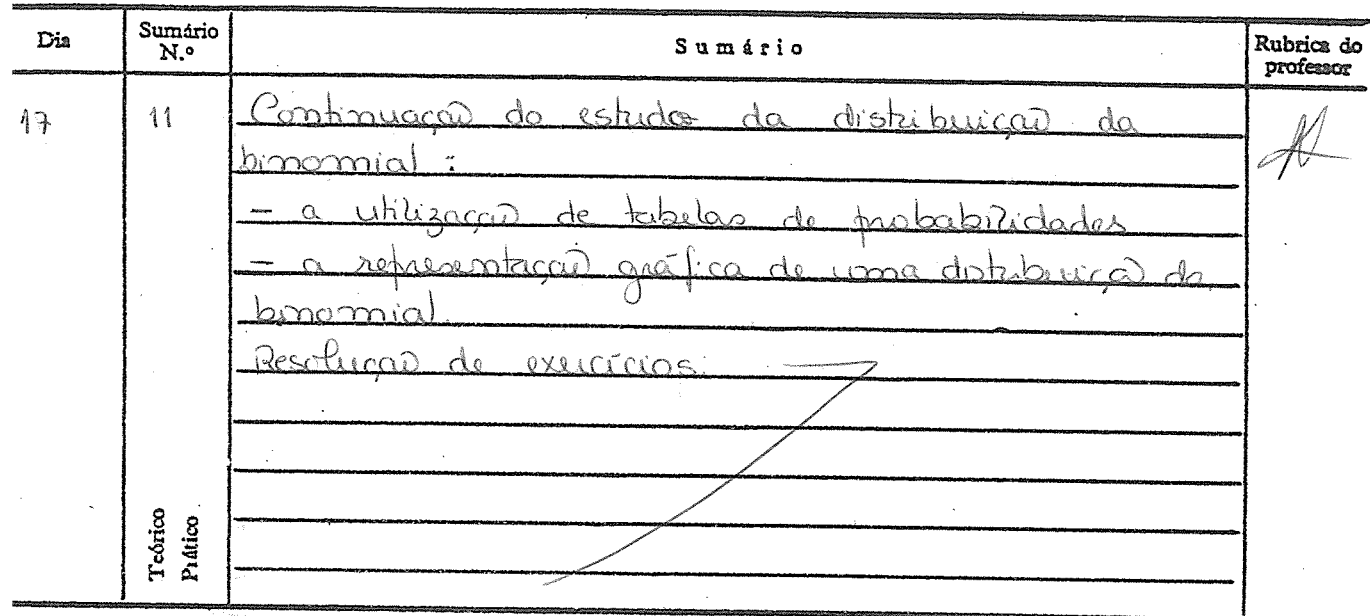 Dia Sumário N.º Sumário Rubrica do professor
17 11 Continuação do estudo da distribuição da
binomial :
- a utilização de tabelas de probabilidades
- a representação gráfica de uma distribuição da
binomial.
Resolução de exercícios.
Teórico
Prático